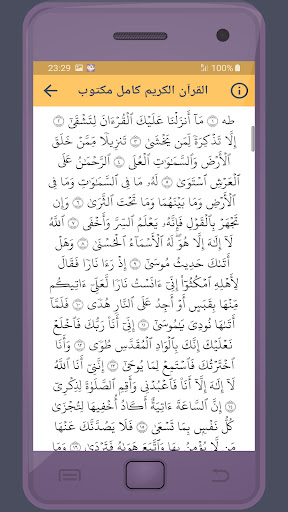 23:29 100%
القرآن الكريم كامل مكتوب
طه ١ مَآ أَنزَلْنَا عَلَيْكَ ٱلْقُرْءَانَ لِتَشْقَىٰٓ ٢
إِلَّا تَذْكِرَةً لِّمَن يَخْشَىٰ ٣ تَنزِيلًا مِّمَّنْ خَلَقَ
ٱلْأَرْضَ وَٱلسَّمَٰوَٰتِ ٱلْعُلَى ٤ ٱلرَّحْمَٰنُ عَلَى
ٱلْعَرْشِ ٱسْتَوَىٰ ٥ لَهُۥ مَا فِى ٱلسَّمَٰوَٰتِ وَمَا فِى
ٱلْأَرْضِ وَمَا بَيْنَهُمَا وَمَا تَحْتَ ٱلثَّرَىٰ ٦ وَإِن
تَجْهَرْ بِٱلْقَوْلِ فَإِنَّهُۥ يَعْلَمُ ٱلسِّرَّ وَأَخْفَى ٧ ٱللَّهُ
لَآ إِلَٰهَ إِلَّا هُوَ لَهُ ٱلْأَسْمَآءُ ٱلْحُسْنَىٰ ٨ وَهَلْ
أَتَىٰكَ حَدِيثُ مُوسَىٰٓ ٩ إِذْ رَءَا نَارًا فَقَالَ
لِأَهْلِهِ ٱمْكُثُوٓا۟ إِنِّىٓ ءَانَسْتُ نَارًا لَّعَلِّىٓ ءَاتِيكُم
مِّنْهَا بِقَبَسٍ أَوْ أَجِدُ عَلَى ٱلنَّارِ هُدًى ١٠ فَلَمَّآ
أَتَىٰهَا نُودِىَ يَٰمُوسَىٰٓ ١١ إِنِّىٓ أَنَا۠ رَبُّكَ فَٱخْلَعْ
نَعْلَيْكَ إِنَّكَ بِٱلْوَادِ ٱلْمُقَدَّسِ طُوًى ١٢ وَأَنَا
ٱخْتَرْتُكَ فَٱسْتَمِعْ لِمَا يُوحَىٰٓ ١٣ إِنَّنِىٓ أَنَا ٱللَّهُ
لَآ إِلَٰهَ إِلَّآ أَنَا۠ فَٱعْبُدْنِى وَأَقِمِ ٱلصَّلَوٰةَ لِذِكْرِىٓ
١٤ إِنَّ ٱلسَّاعَةَ ءَاتِيَةٌ أَكَادُ أُخْفِيهَا لِتُجْزَىٰ
كُلُّ نَفْسٍۭ بِمَا تَسْعَىٰ ١٥ فَلَا يَصُدَّنَّكَ عَنْهَا
مَن لَّا يُؤْمِنُ بِهَا وَٱتَّبَعَ هَوَىٰهُ فَتَرْدَىٰ ١٦ وَمَا